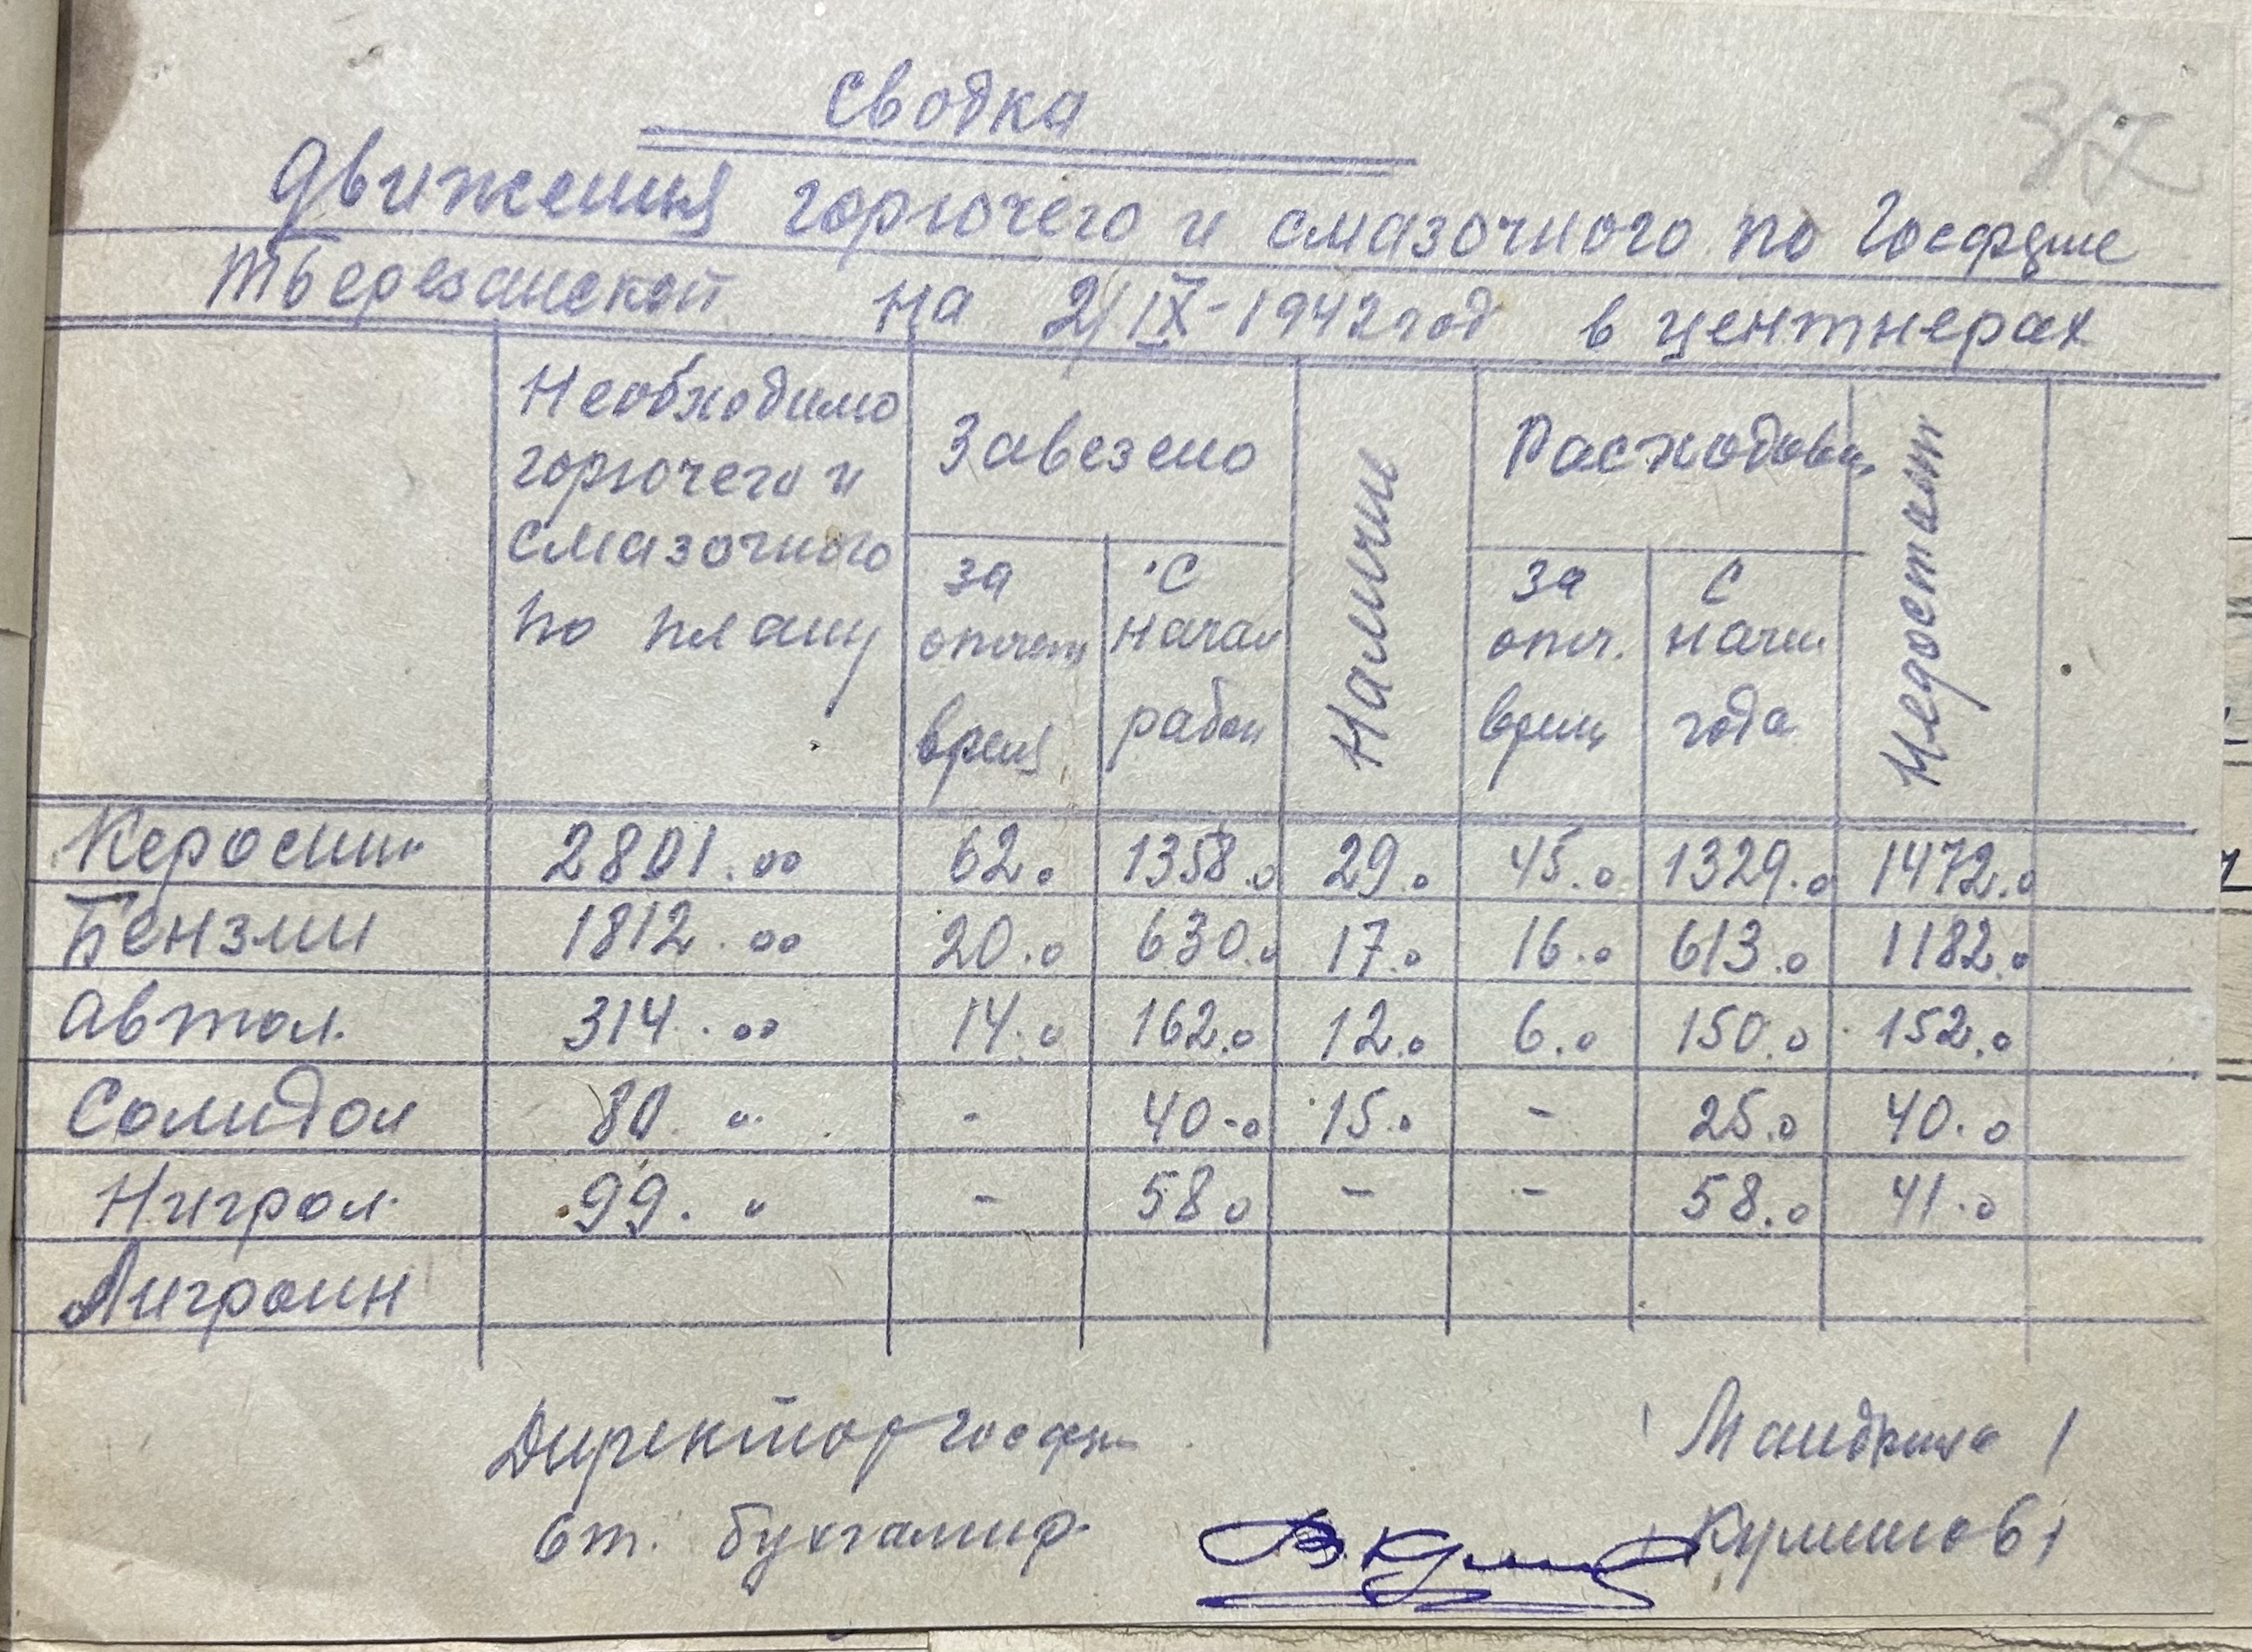 37
Сводка
движения горючего и смазочного по Госферме
Березанской на 2/IX-1942 год в центнерах
Необходимо горючего и смазочного по плану
Завезено
Наличие
Расходован
Недостает
за отчетн время
с начал работ
за отч. время
с начал года
Керосин 2801.00 62.0 1358.0 29.0 45.0 1329.0 1472.0
Бензин 1812.00 20.0 630.0 17.0 16.0 613.0 1182.0
Автол. 314.00 14.0 162.0 12.0 6.0 150.0 152.0
Солидол 80. " - 40-0 15.0 - 25.0 40.0
Нигрол. 99. " - 58.0 - - 58.0 41.0
Лигроин
Директор Госфер /Мандрика/
Ст. бухгалтер /Куликов/